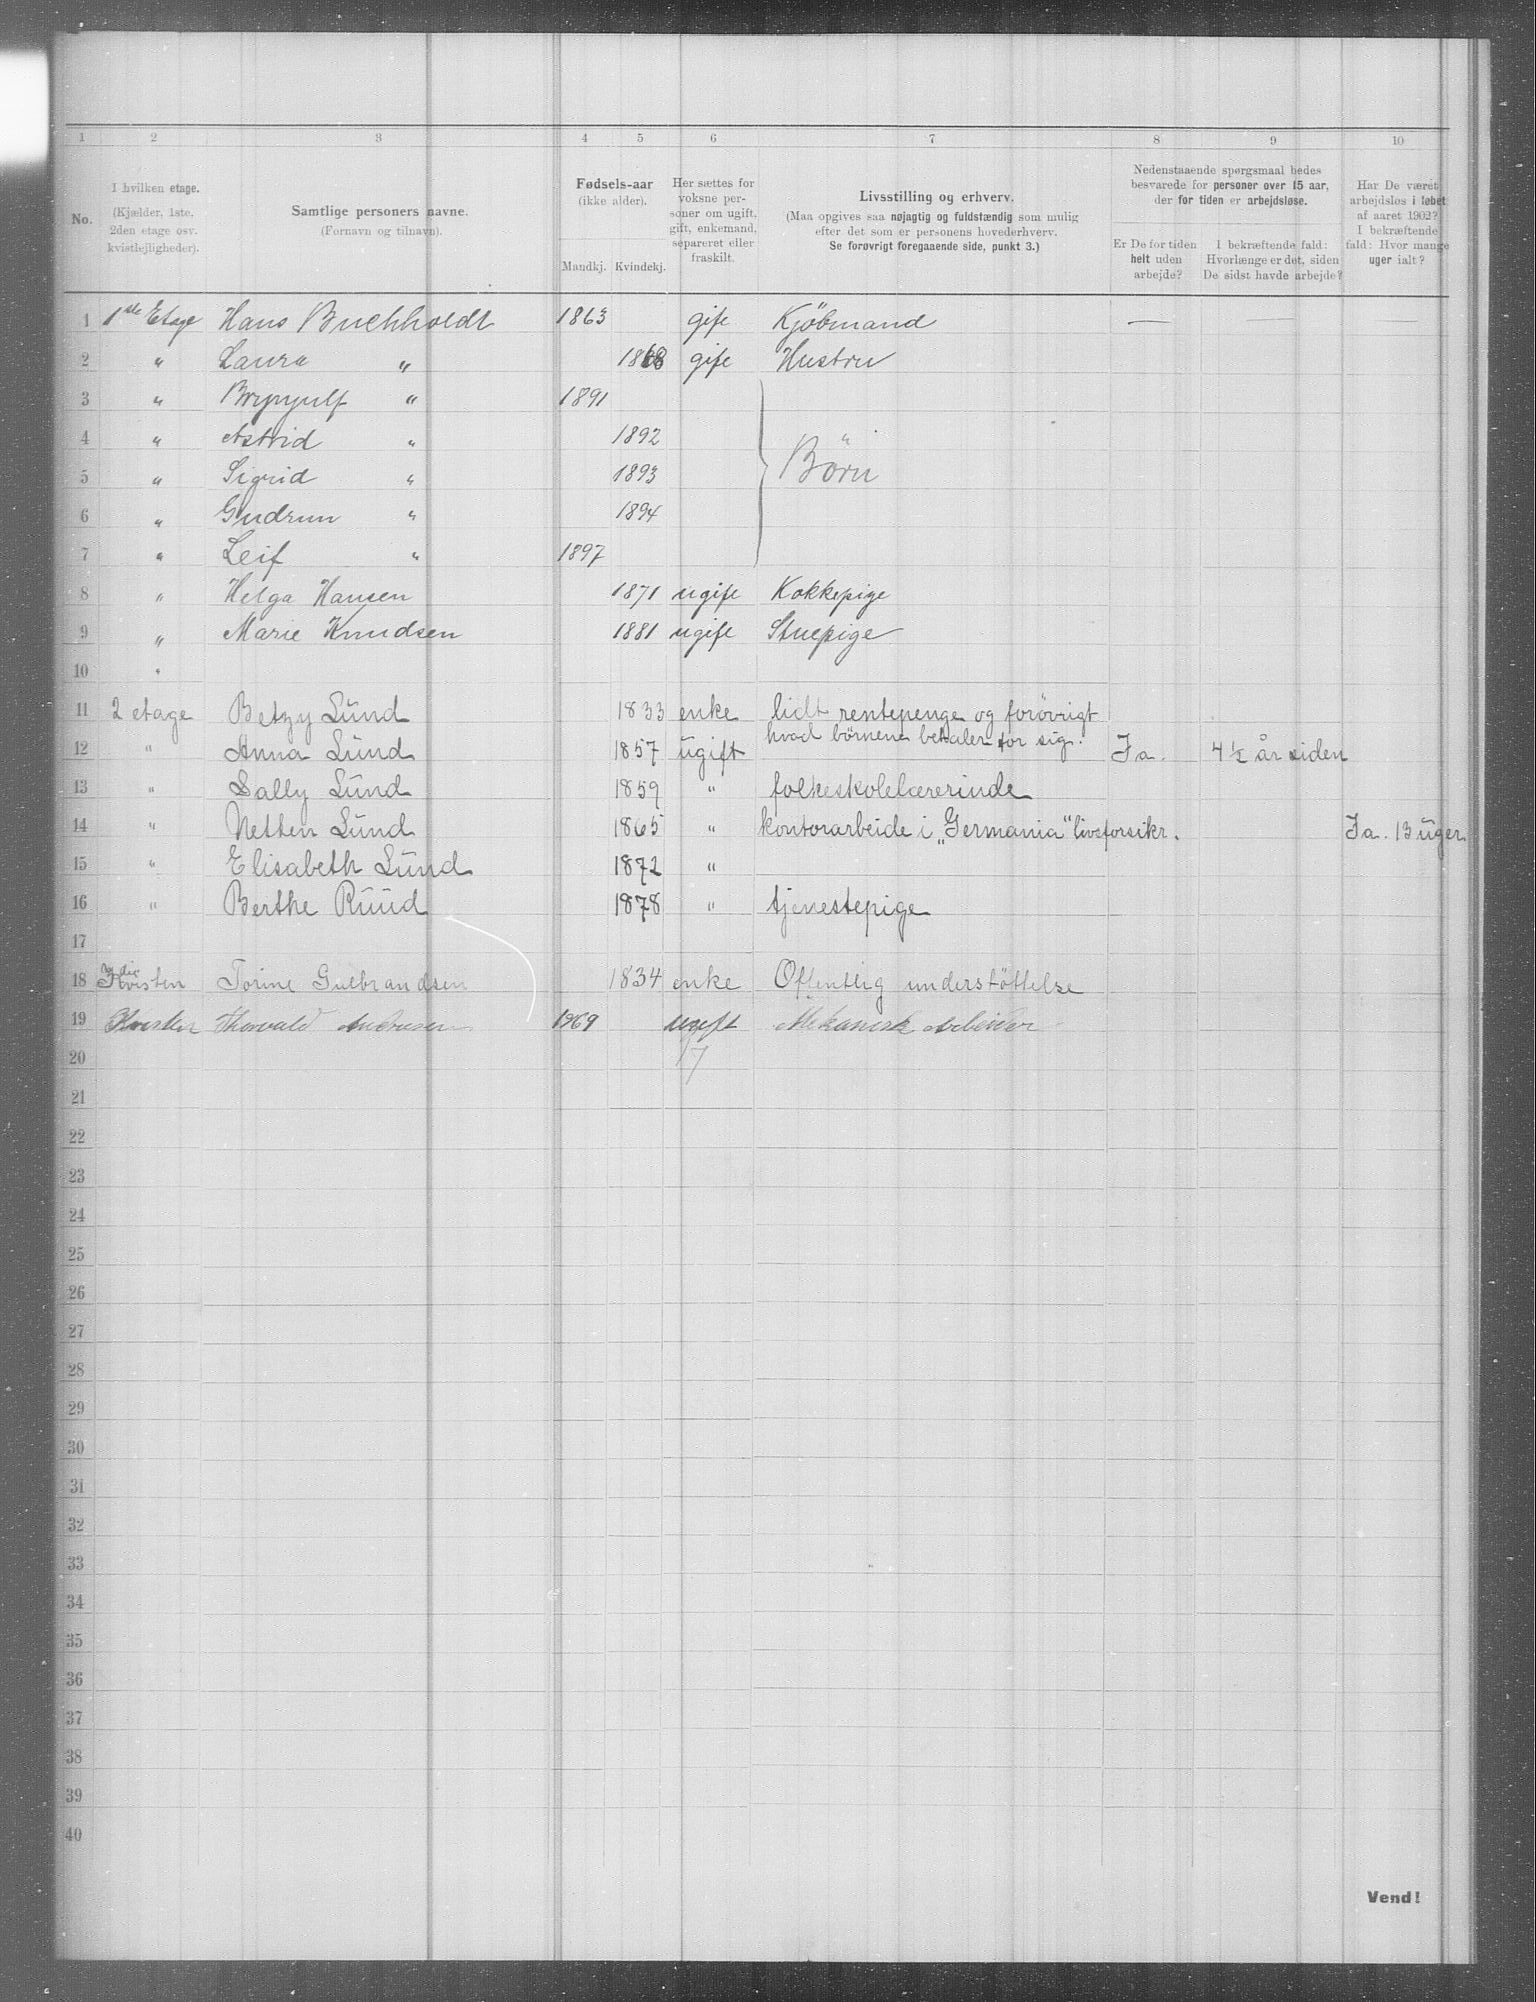 1 2 3 4 5 6 7 8 9 10
No.
I hvilken etage.
(Kjælder, 1ste,
2den etage osv.
kvistlejligheder).
Samtlige personers navne.
(Fornavn og tilnavn).
Fødsels-aar
(ikke alder).
Mandkj. Kvindekj.
Her sættes for
voksne per-
soner om ugift,
gift, enkemand,
separeret eller
fraskilt.
Livsstilling og erhverv.
(Maa opgives saa nøjagtig og fuldstændig som mulig
efter det som er personens hovederhverv.
Se forøvrigt foregaaende side, punkt 3.)
Nedenstaaende spørgsmaal bedes
besvarede for personer over 15 aar,
der for tiden er arbejdsløse.
Er De for tiden
helt uden
arbejde?
I bekræftende fald:
Hvorlænge er det, siden
De sidst havde arbejde?
Har De været
arbejdsløs i løbet
af aaret 1902?
I bekræftende
fald: Hvor mange
uger ialt?
1 1ste Etage Hans Buchholdt 1863 gift Kjöbmand — — —
2 " Laura " 1868 gift Hustru
3 " Brynjulf " 1891
4 " Astrid " 1892
5 " Sigrid " 1893 Börn
6 " Gudrun " 1894
7 " Leif " 1897
8 " Helga Hansen 1871 ugift Kokkepige
9 " Marie Knudsen 1881 ugift Stuepige
10 "
11 2 etage Betzy Lund 1833 enke lidt rentepenge og forövrigt
hvad börnene betaler for sig.
12 " Anna Lund 1857 ugift Ja. 4 ½ år siden
13 " Sally Lund 1859 " folkeskolelærerinde
14 " Netten Lund 1865 " kontorarbeide i „Germania" livsforsikr. Ja. 13 uger
15 " Elisabeth Lund 1872 "
16 " Berthe Ruud 1878 " tjenestepige
17
18 Kvisten Torine Gulbrandsen 1834 enke Offentlig understöttelse
19 Kvisten Thorvald Andresen 1869 ugift Mekanisk Arbeider
17
20
21
22
23
24
25
26
27
28
29
30
31
32
33
34
35
36
37
38
39
40
Vend!